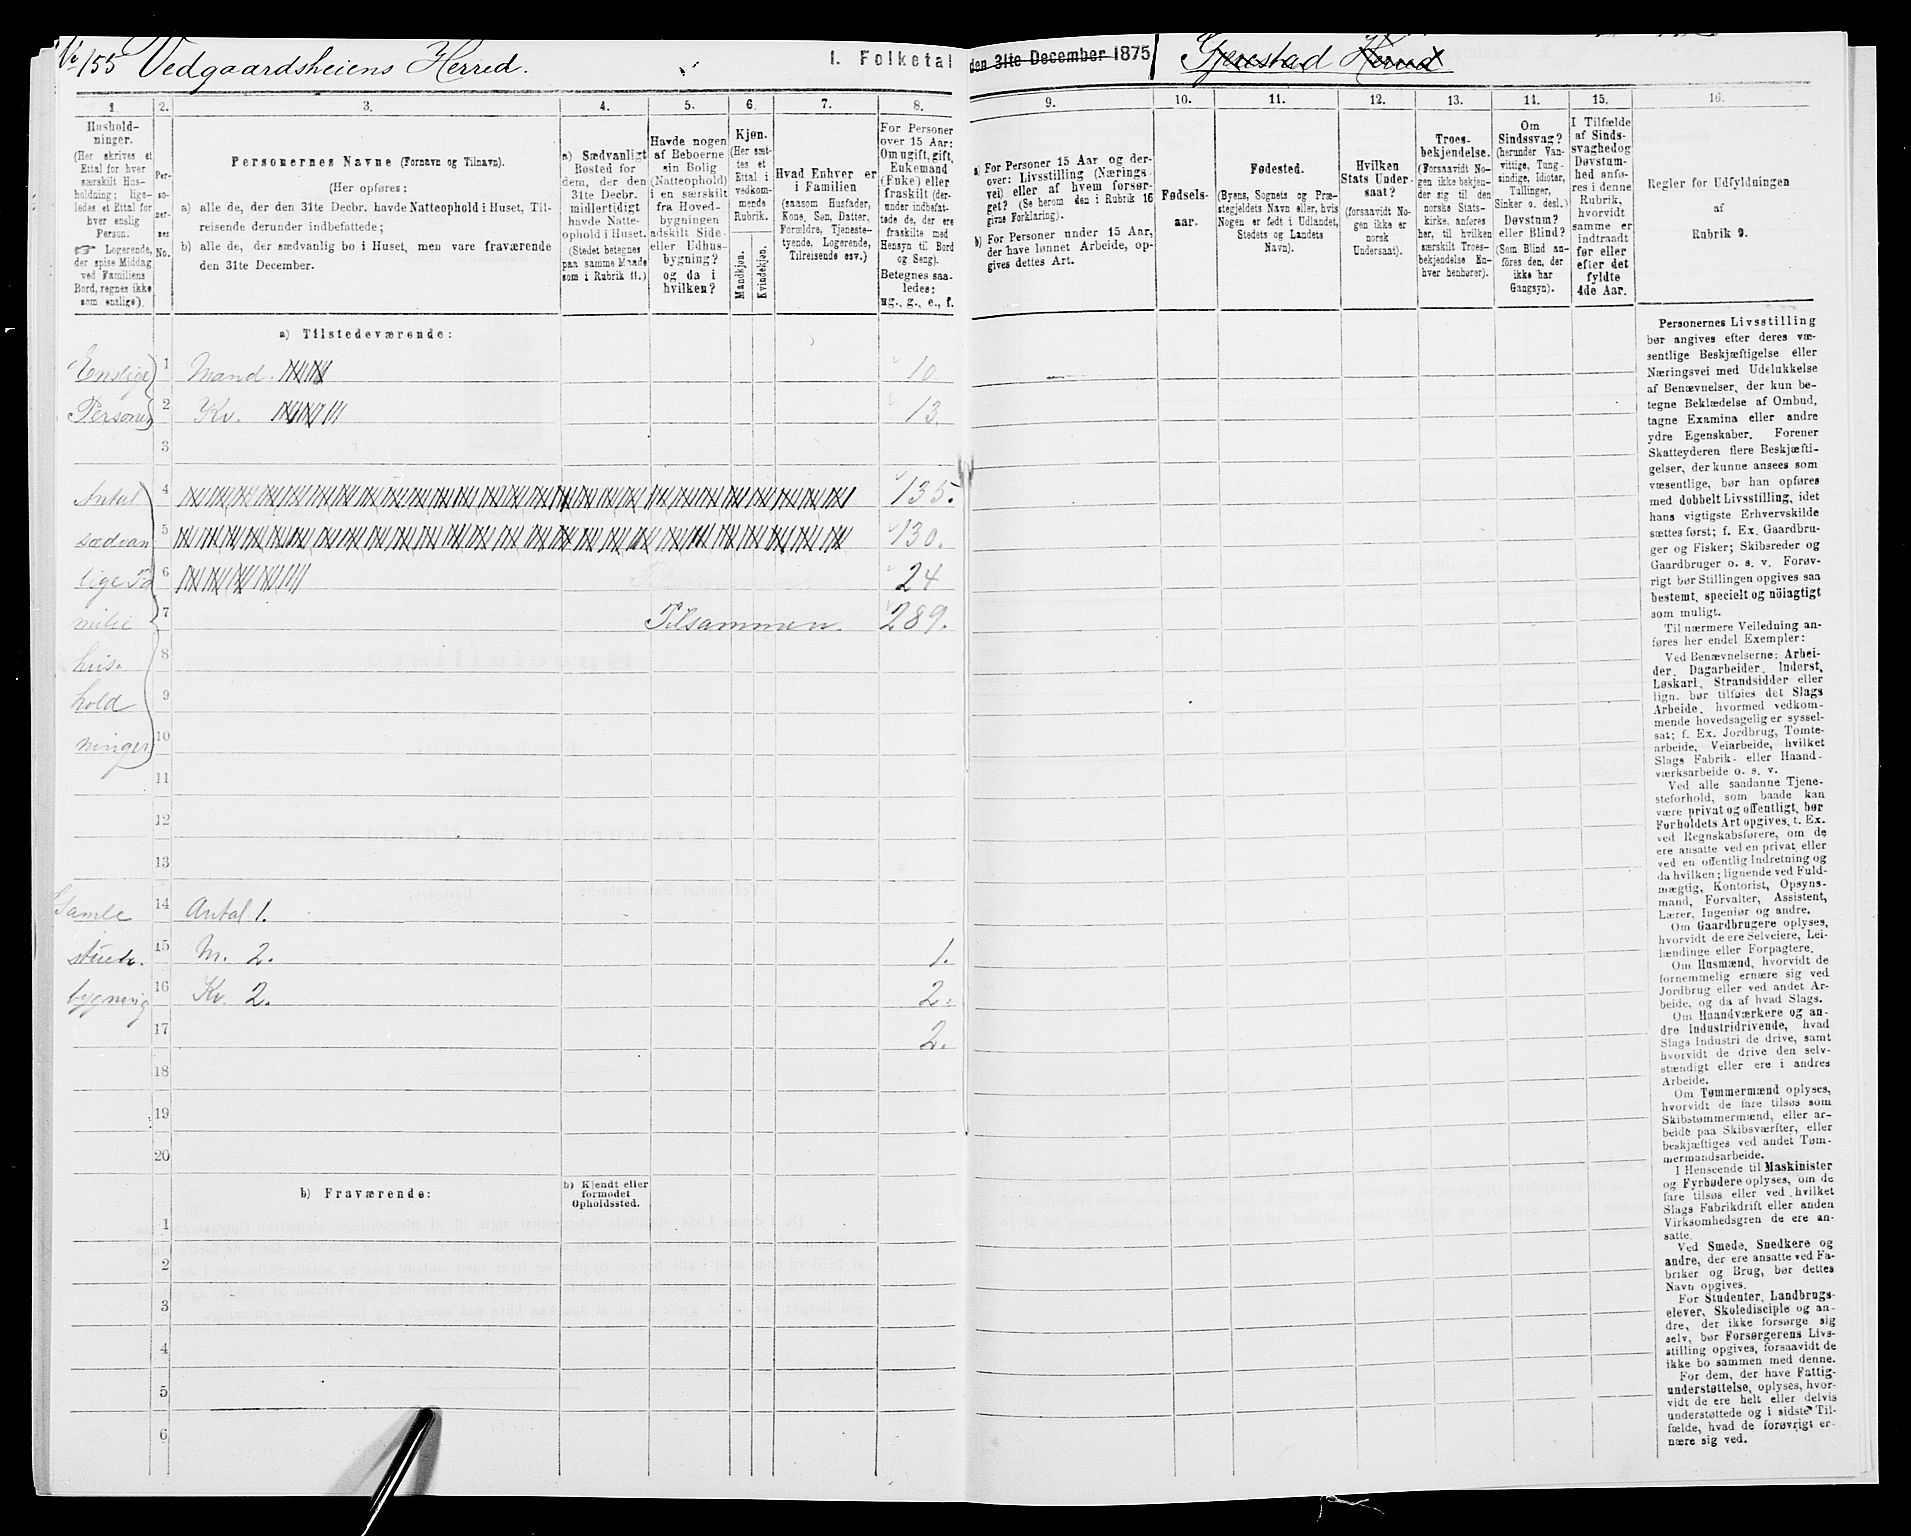 No 155 Vedgaardsheiens Herred.
I. Folketal den 31te December 1875
Gjerestad Herred
1.
2.
3.
4.
5.
6.
7.
8.
9.
10.
11.
12.
13.
14.
15.
16.
Husholdninger.
(Her skrives et
Ettal for hver
særskilt Husholdning;
ligeledes et Ettal for
hver enslig
Person.
☞ Logerende,
der spise Middag
ved Familiens
Bord, regnes ikke
som enslige).
Personernes No.
Personernes Navne (Fornavn og Tilnavn).
(Her opføres:
a) alle de, der den 31te Decbr. havde Natteophold i Huset, Tilreisende derunder indbefattede;
b) alle de, der sædvanlig bo i Huset, men vare fraværende
den 31te December.
a) Sædvanligt
Bosted for
dem, der den
31te Decbr.
midlertidigt
havde Natteophold i Huset.
(Stedet betegnes
paa samme Maade
som i Rubrik 11.)
Havde nogen
af Beboerne
sin Bolig
(Natteophold)
i en særskilt
fra Hovedbygningen
adskilt Side-
eller Udhusbygning?
og da i
hvilken?
Kjøn.
(Her sættes et
Ettal i
vedkommende
Rubrik.
Mandkjøn.
Kvindekjøn.
Hvad Enhver er
i Familien
(saasom Husfader,
Kone, Søn, Datter,
Forældre, Tjenestetyende, Logerende,
Tilreisende osv.)
For Personer
over 15 Aar:
Om ugift, gift,
Enkemand
(Enke) eller
fraskilt (derunder indbefattede de, der ere
fraskilte med
Hensyn til Bord
og Seng).
Betegnes saaledes:
ug., g., e., f.
a) For Personer 15 Aar og derover: Livsstilling (Næringsvei) eller af hvem forsørget? (Se herom den i Rubrik 16
givne Forklaring).
b) For Personer under 15 Aar,
der have lønnet Arbeide, opgives dettes Art.
Fødselsaar.
Fødested.
(Byens, Sognets og Præstegjeldets Navn eller, hvis
Nogen er født i Udlandet,
Stedets og Landets
Navn).
Hvilken
Stats Undersaat?
(forsaavidt Nogen ikke er
norsk
Undersaat).
Troesbekjendelse.
(Forsaavidt Nogen ikke bekjender sig til den
norske Statskirke, anføres
her, til hvilken
særskilt Troesbekjendelse Enhver henhører).
Om
Sindssvag?
(herunder Vanvittige, Tungsindige, Idioter,
Tullinger,
Sinker o. desl.)
Døvstum?
eller Blind?
(Som Blind anføres den, der
ikke har
Gangsyn).
I Tilfælde
af Sindssvaghed og
Døvstumhed anføres i denne
Rubrik,
hvorvidt
samme er
indtraadt
før eller
efter det
fyldte
4de Aar.
Regler for Udfyldningen
af
Rubrik 9.
a) Tilstedeværende:
Enslige 1 Mand. 10
Personer 2 Kv. 13.
3
Antal 4 135.
sædvan 5 130.
lige Fa 6 24
milie 7 Tilsammen. 289.
hus- 8
hold 9
ninger 10
11
12
13
Samle 14 Antal 1.
stue 15 M. 2. 1.
bygning 16 Kv. 2. 2.
17 2.
18
19
20
b) Fraværende:
b) Kjendt eller
formodet
Opholdssted.
1
2
3
4
5
6
Personernes Livsstilling
bør angives efter deres væsentlige Beskjæftigelse eller
Næringsvei med Udelukkelse
af Benævnelser, der kun betegne Beklædelse af Ombud,
tagne Examina eller andre
ydre Egenskaber. Forener
Skatteyderen flere Beskjæftigelser, der kunne ansees som
væsentlige, bør han opføres
med dobbelt Livsstilling, idet
hans vigtigste Erhvervskilde
sættes først; f. Ex. Gaardbruger og Fisker; Skibsreder og
Gaardbruger o. s. v. Forøvrigt bør Stillingen opgives saa
bestemt, specielt og nöiagtigt
som muligt.
Til nærmere Veiledning anføres her endel Exempler:
Ved Benævnelserne: Arbeider, Dagarbeider, Inderst,
Løskarl, Strandsidder eller
lign. bør tilføies det Slags
Arbeide, hvormed vedkommende hovedsagelig er sysselsat; f. Ex. Jordbrug, Tomtearbeide, Veiarbeide, hvilket
Slags Fabrik- eller Haandværksarbeide o. s. v.
Ved alle saadanne Tjenesteforhold, som baade kan
være privat og offentligt, bør
Forholdets Art opgives, t. Ex.
ved Regnskabsførere, om de
ere ansatte ved en privat eller
ved en offentlig Indretning og
da hvilken; lignende ved Fuldmægtig, Kontorist, Opsynsmand, Forvalter, Assistent,
Lærer, Ingeniør og andre.
Om Gaardbrugere oplyses,
hvorvidt de ere Selveiere, Leilændinge eller Forpagtere.
Om Husmænd, hvorvidt de
fornemmelig ernære sig ved
Jordbrug eller ved andet Arbeide, og da af hvad Slags.
Om Haandværkere og andre Industridrivende, hvad
Slags Industri de drive, samt
hvorvidt de drive den selvstændigt eller ere i andres
Arbeide.
Om Tømmermænd oplyses,
hvorvidt de fare tilsøs som
Skibstømmermænd, eller arbeide paa Skibsværfter, eller
beskjæftiges ved andet Tømmermandsarbeide.
I Henseende til Maskinister
og Fyrbødere oplyses, om de
fare tilsøs eller ved hvilket
Slags Fabrikdrift eller anden
Virksomhedsgren de ere ansatte.
Ved Smede, Snedkere og
andre, der ere ansatte ved Fabriker og Brug, bør dettes
Navn opgives.
For Studenter, Landbrugselever, Skoledisciple og andre, der ikke forsørge sig
selv, bør Forsørgerens Livsstilling opgives, forsaavidt de
ikke bo sammen med denne.
For dem, der have Fattigunderstøttelse, oplyses, hvorvidt de ere helt eller delvis
understøttede og i sidste Tilfælde, hvad de forøvrigt ernære sig ved.